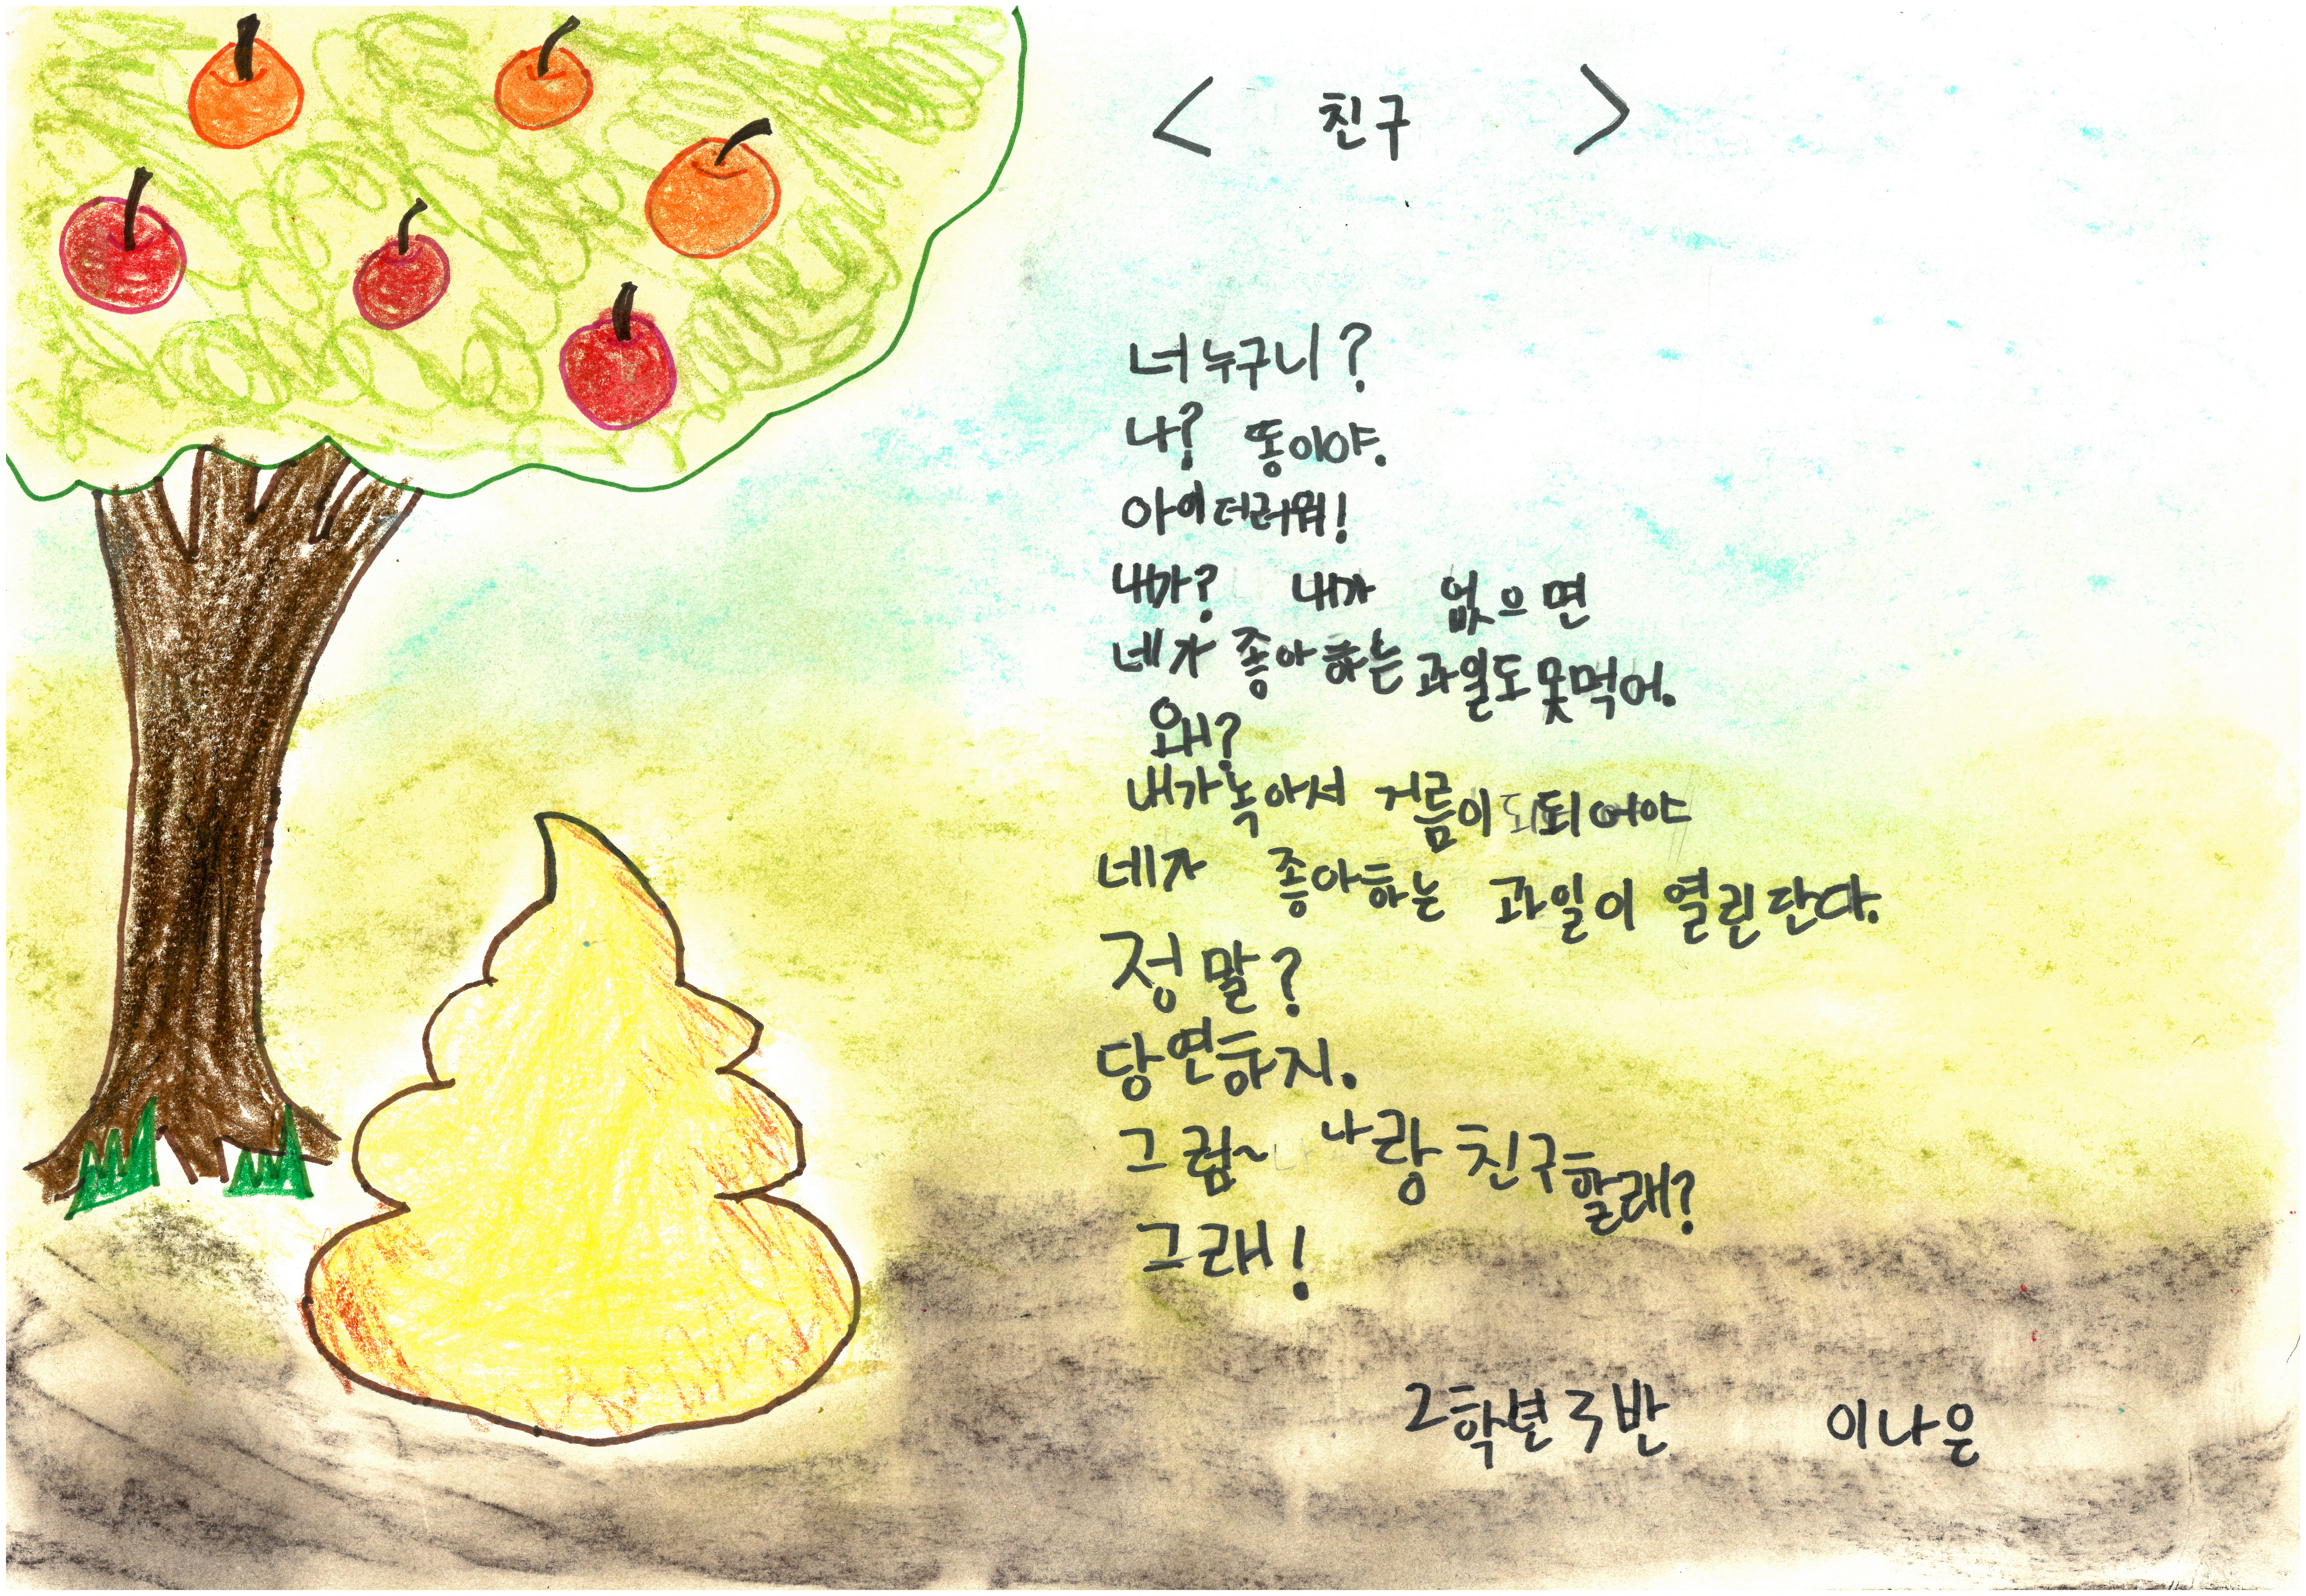 < 친구 >
너 누구니?
나? 똥이야.
아이 더러워!
내가? 내가 없으면
네가 좋아하는 과일도 못먹어.
왜?
내가 녹아서 거름이 되어야
네가 좋아하는 과일이 열린단다.
정말?
당연하지.
그럼~ 나랑 친구할래?
그래!
2학년 3반 이나은